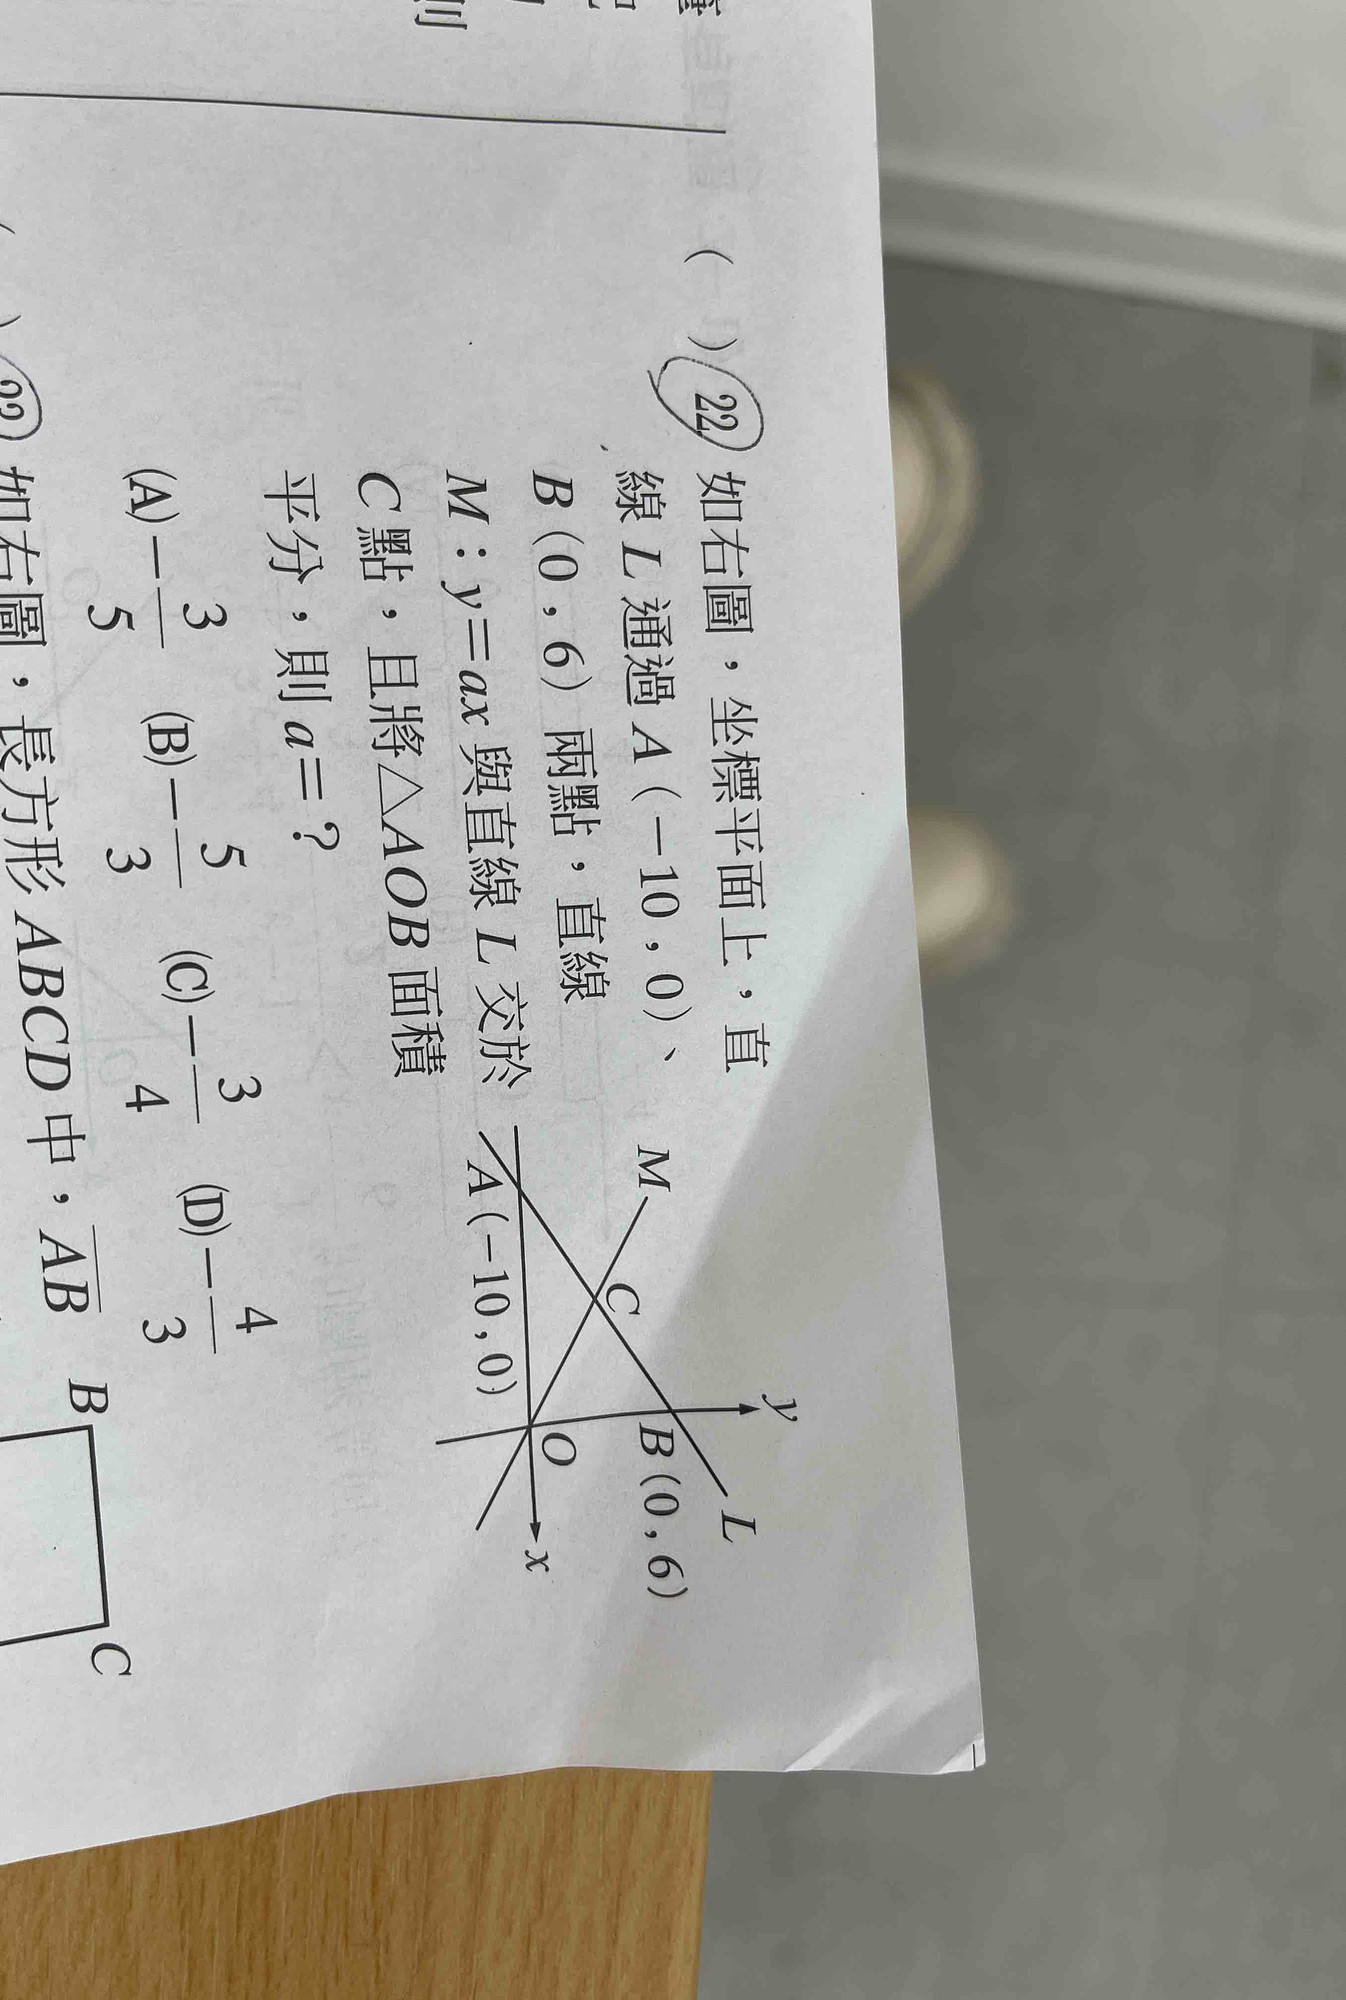 ( )22 如右圖，坐標平面上，直
線 L 通過 A（－10 , 0）、
B（0 , 6）兩點，直線
M：y＝ax 與直線 L 交於
C 點，且將△AOB 面積
平分，則 a＝？
(A)－3/5 (B)－5/3 (C)－3/4 (D)－4/3
M
C
y
L
B(0 , 6)
A(－10 , 0)
O
x
如右圖，長方形 ABCD 中，AB
B
C
則